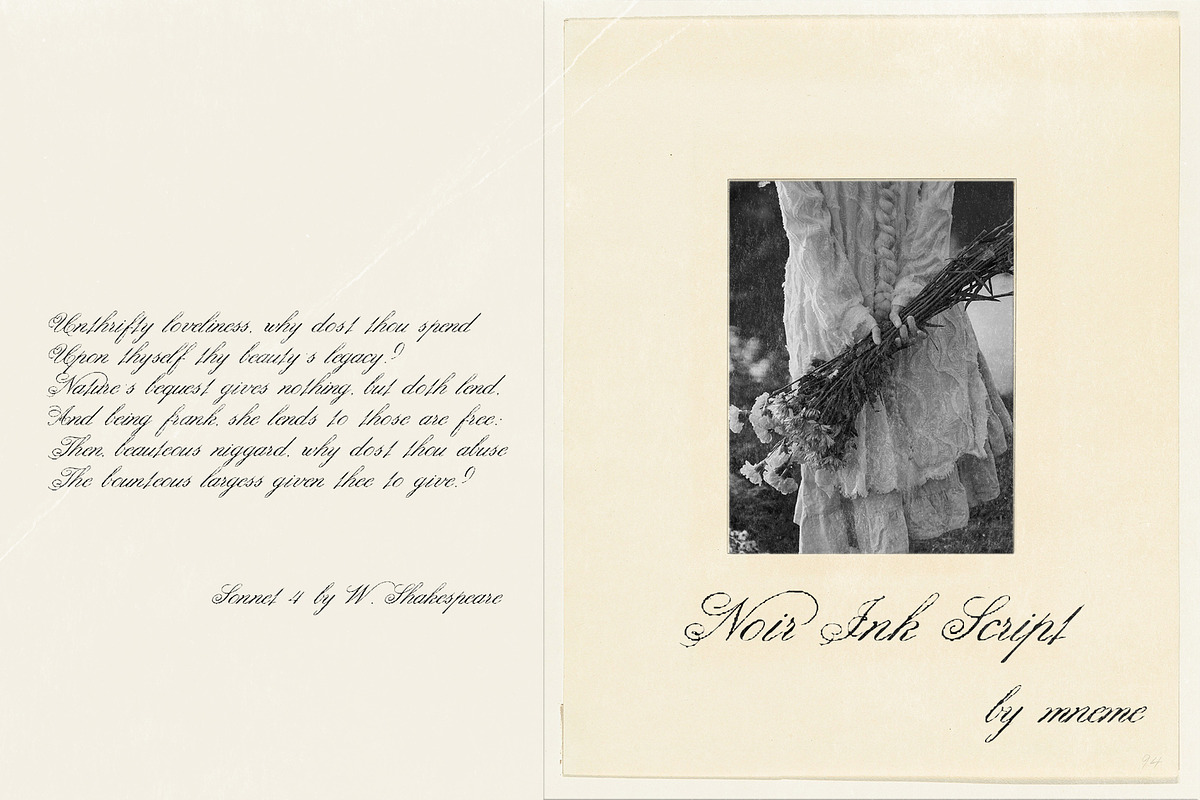 Unthrifty loveliness, why dost thou spend
Upon thyself thy beauty's legacy?
Nature's bequest gives nothing, but doth lend,
And being frank, she lends to those are free:
Then, beauteous niggard, why dost thou abuse
The bounteous largess given thee to give?
Sonnet 4 by W. Shakespeare
Noir Ink Script
by mneme
94